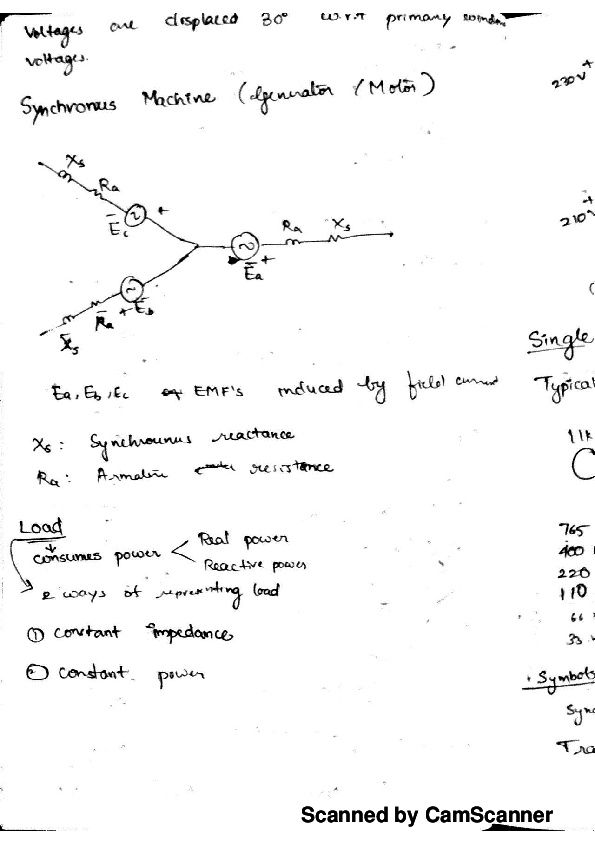 Voltages are displaced 30° w.r.t primary winding
voltages.
Synchronus Machine (Generator / Motor)
230V +
Xs
Ra
Ēc
+
210V +
Ra Xs
+
Ēa
R̄a + Ēb
X̄s
Single
Ea, Eb, Ec EMF's induced by field current
Typical
Xs: Synchrounus reactance
11k
Ra: Armature resistance
Load
consumes power < Real power
Reactive power
2 ways of representing load
① constant impedance
② constant power
765
400
220
110
66
33
Symbols
Sync
Tra
Scanned by CamScanner